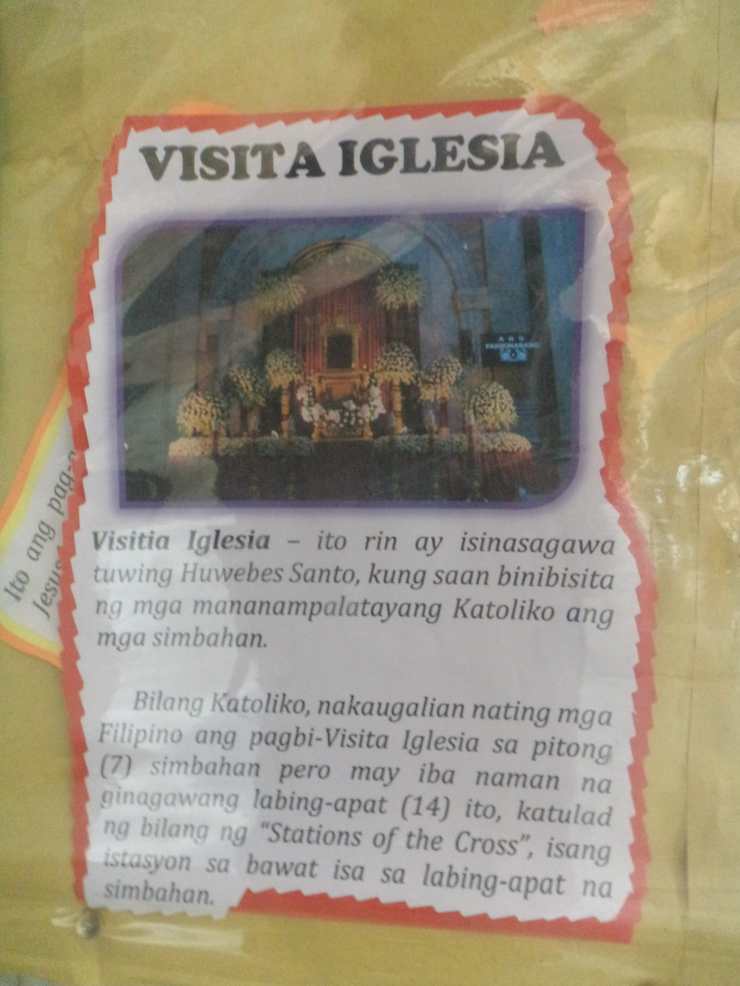 VISITA IGLESIA
Visitia Iglesia – ito rin ay isinasagawa
tuwing Huwebes Santo, kung saan binibisita
ng mga mananampalatayang Katoliko ang
mga simbahan.
Bilang Katoliko, nakaugalian nating mga
Filipino ang pagbi-Visita Iglesia sa pitong
(7) simbahan pero may iba naman na
ginagawang labing-apat (14) ito, katulad
ng bilang ng “Stations of the Cross”, isang
istasyon sa bawat isa sa labing-apat na
simbahan.
Ito ang pag-
Jesus